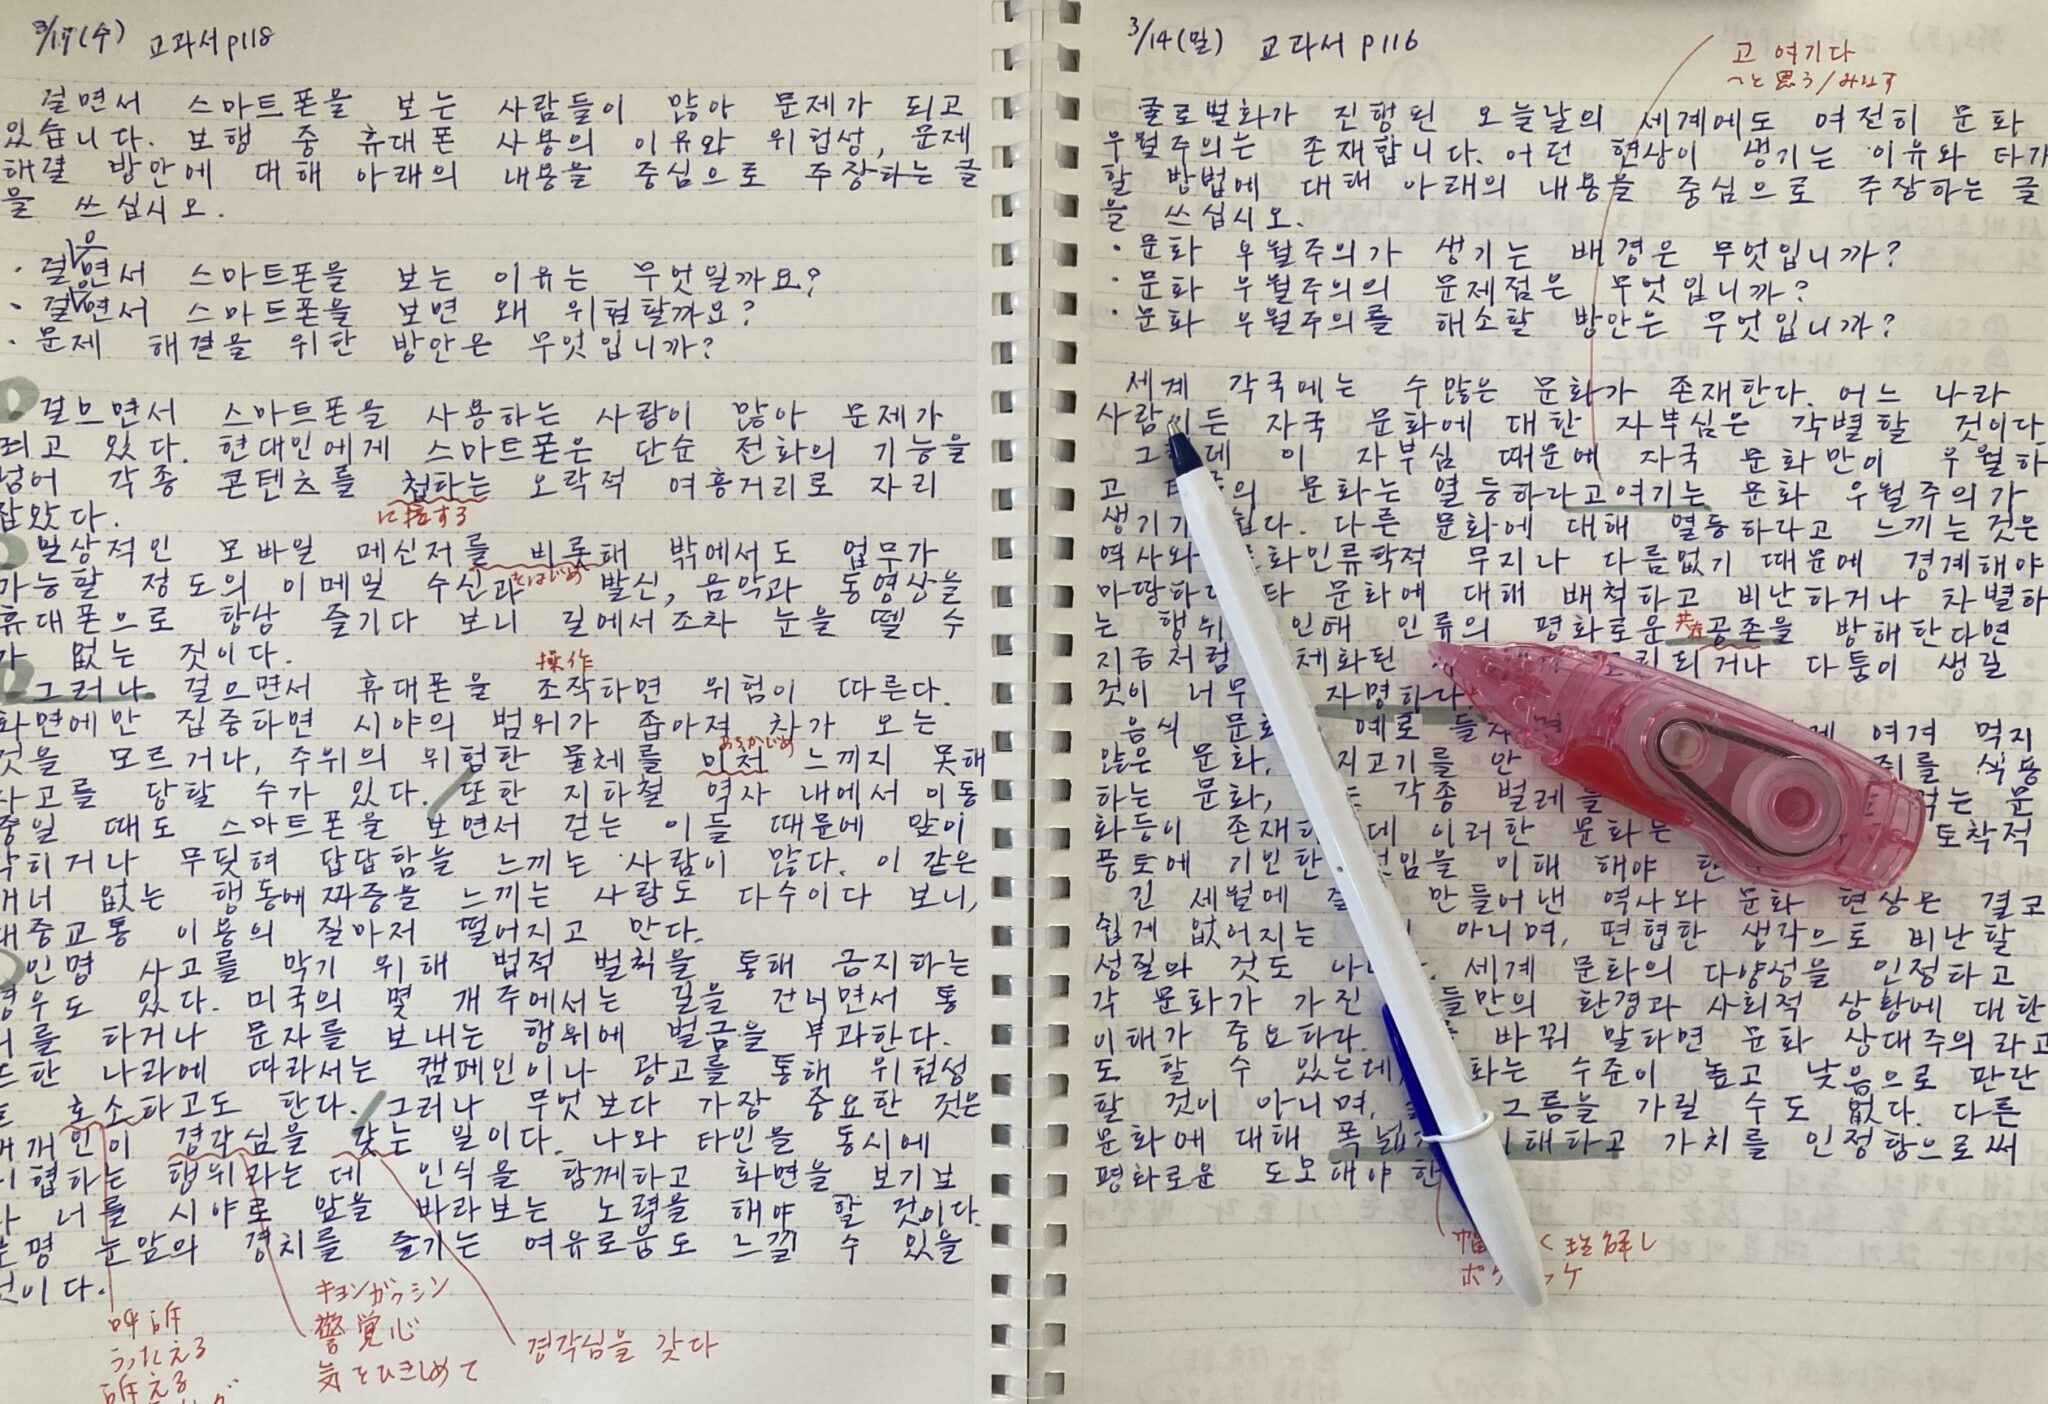 3/17(수) 교과서 p118
걸면서 스마트폰을 보는 사람들이 많아 문제가 되고
있습니다. 보행 중 휴대폰 사용의 이유와 위험성, 문제
해결 방안에 대해 아래의 내용을 중심으로 주장하는 글
을 쓰십시오.
으
· 걸면서 스마트폰을 보는 이유는 무엇일까요?
으
· 걸면서 스마트폰을 보면 왜 위험할까요?
· 문제 해결을 위한 방안은 무엇입니까?
걸으면서 스마트폰을 사용하는 사람이 많아 문제가
되고 있다. 현대인에게 스마트폰은 단순 전화의 기능을
넘어 각종 콘텐츠를 접하는 오락적 여흥거리로 자리
잡았다.
に接する
일상적인 모바일 메신저를 비롯해 밖에서도 업무가
をはじめ
가능할 정도의 이메일 수신과 발신, 음악과 동영상을
휴대폰으로 항상 즐기다 보니 길에서조차 눈을 뗄 수
가 없는 것이다.
操作
그러나 걸으면서 휴대폰을 조작하면 위험이 따른다.
화면에만 집중하면 시야의 범위가 좁아져 차가 오는
あらかじめ
것을 모르거나, 주위의 위험한 물체를 미처 느끼지 못해
사고를 당할 수가 있다. 또한 지하철 역사 내에서 이동
중일 때도 스마트폰을 보면서 걷는 이들 때문에 앞이
막히거나 부딪혀 답답함을 느끼는 사람이 많다. 이 같은
매너 없는 행동에 짜증을 느끼는 사람도 다수이다 보니,
대중교통 이용의 질마저 떨어지고 만다.
인명 사고를 막기 위해 법적 벌칙을 통해 금지하는
경우도 있다. 미국의 몇 개주에서는 길을 건너면서 통
를 하거나 문자를 보내는 행위에 벌금을 부과한다.
또한 나라에 따라서는 캠페인이나 광고를 통해 위험성
호소하고도 한다. 그러나 무엇보다 가장 중요한 것은
개인이 경각심을 갖는 일이다. 나와 타인을 동시에
위협하는 행위라는 데 인식을 함께하고 화면을 보기보
다 너를 시야로 앞을 바라보는 노력을 해야 할 것이다.
분명 눈앞의 경치를 즐기는 여유로움도 느낄 수 있을
것이다.
呼訴
うったえる
訴える
キョンガクシン
警覚心
気をひきしめて
경각심을 갖다
3/14(일) 교과서 p116
고 여기다
〜と思う/みなす
글로벌화가 진행된 오늘날의 세계에도 여전히 문화
우월주의는 존재합니다. 이런 현상이 생기는 이유와 타개
할 방법에 대해 아래의 내용을 중심으로 주장하는 글
을 쓰십시오.
· 문화 우월주의가 생기는 배경은 무엇입니까?
· 문화 우월주의의 문제점은 무엇입니까?
· 문화 우월주의를 해소할 방안은 무엇입니까?
세계 각국에는 수많은 문화가 존재한다. 어느 나라
사람이든 자국 문화에 대한 자부심은 각별할 것이다.
이 자부심 때문에 자국 문화만이 우월하
고 문화는 열등하라고여기는 문화 우월주의가
생기기 쉽다. 다른 문화에 대해 열등하라고 느끼는 것은
역사와 문화인류학적 무지나 다름없기 때문에 경계해야
마땅하다 문화에 대해 배척하고 비난하거나 차별하
共存
는 행위 인해 인류의 평화로운 공존을 방해한다면
지금처럼 다툼이 생길
것이 너무 자명하다.
음식 문화 예로 들자 여겨 먹지
않은 문화, 식용
하는 문화, 각종 벌레를 먹는 문
화등이 존재하 데 이러한 문화는 토착적
풍토에 기인한 이해 해야 한
긴 세월에 만들어낸 역사와 문화 현상은 결코
쉽게 없어지는 아니며, 편협한 생각으로 비난할
성질의 것도 세계 문화의 다양성을 인정하고
각 문화가 가진 들만의 환경과 사회적 상황에 대한
이해가 중요하다. 바꿔 말하면 문화 상대주의라고
도 할 수 있는데, 수준이 높고 낮음으로 판단
할 것이 아니며, 그름을 가릴 수도 없다. 다른
문화에 대해 폭넓 이해하고 가치를 인정함으로써
평화로운 도모해야 한
く理解し